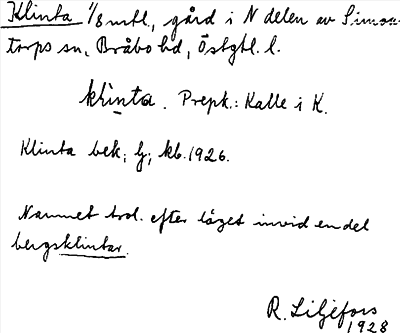 Klinta 1/8 mtl., gård i N delen av Simons-
torps sn, Bråbo hd, Östgtl. l.
klinta. Prepk.: Kalle i K.
Klinta bek. lj. kb. 1926.
Namnet trol. efter läget invid en del
bergsklintar.
R. Liljefors
1928